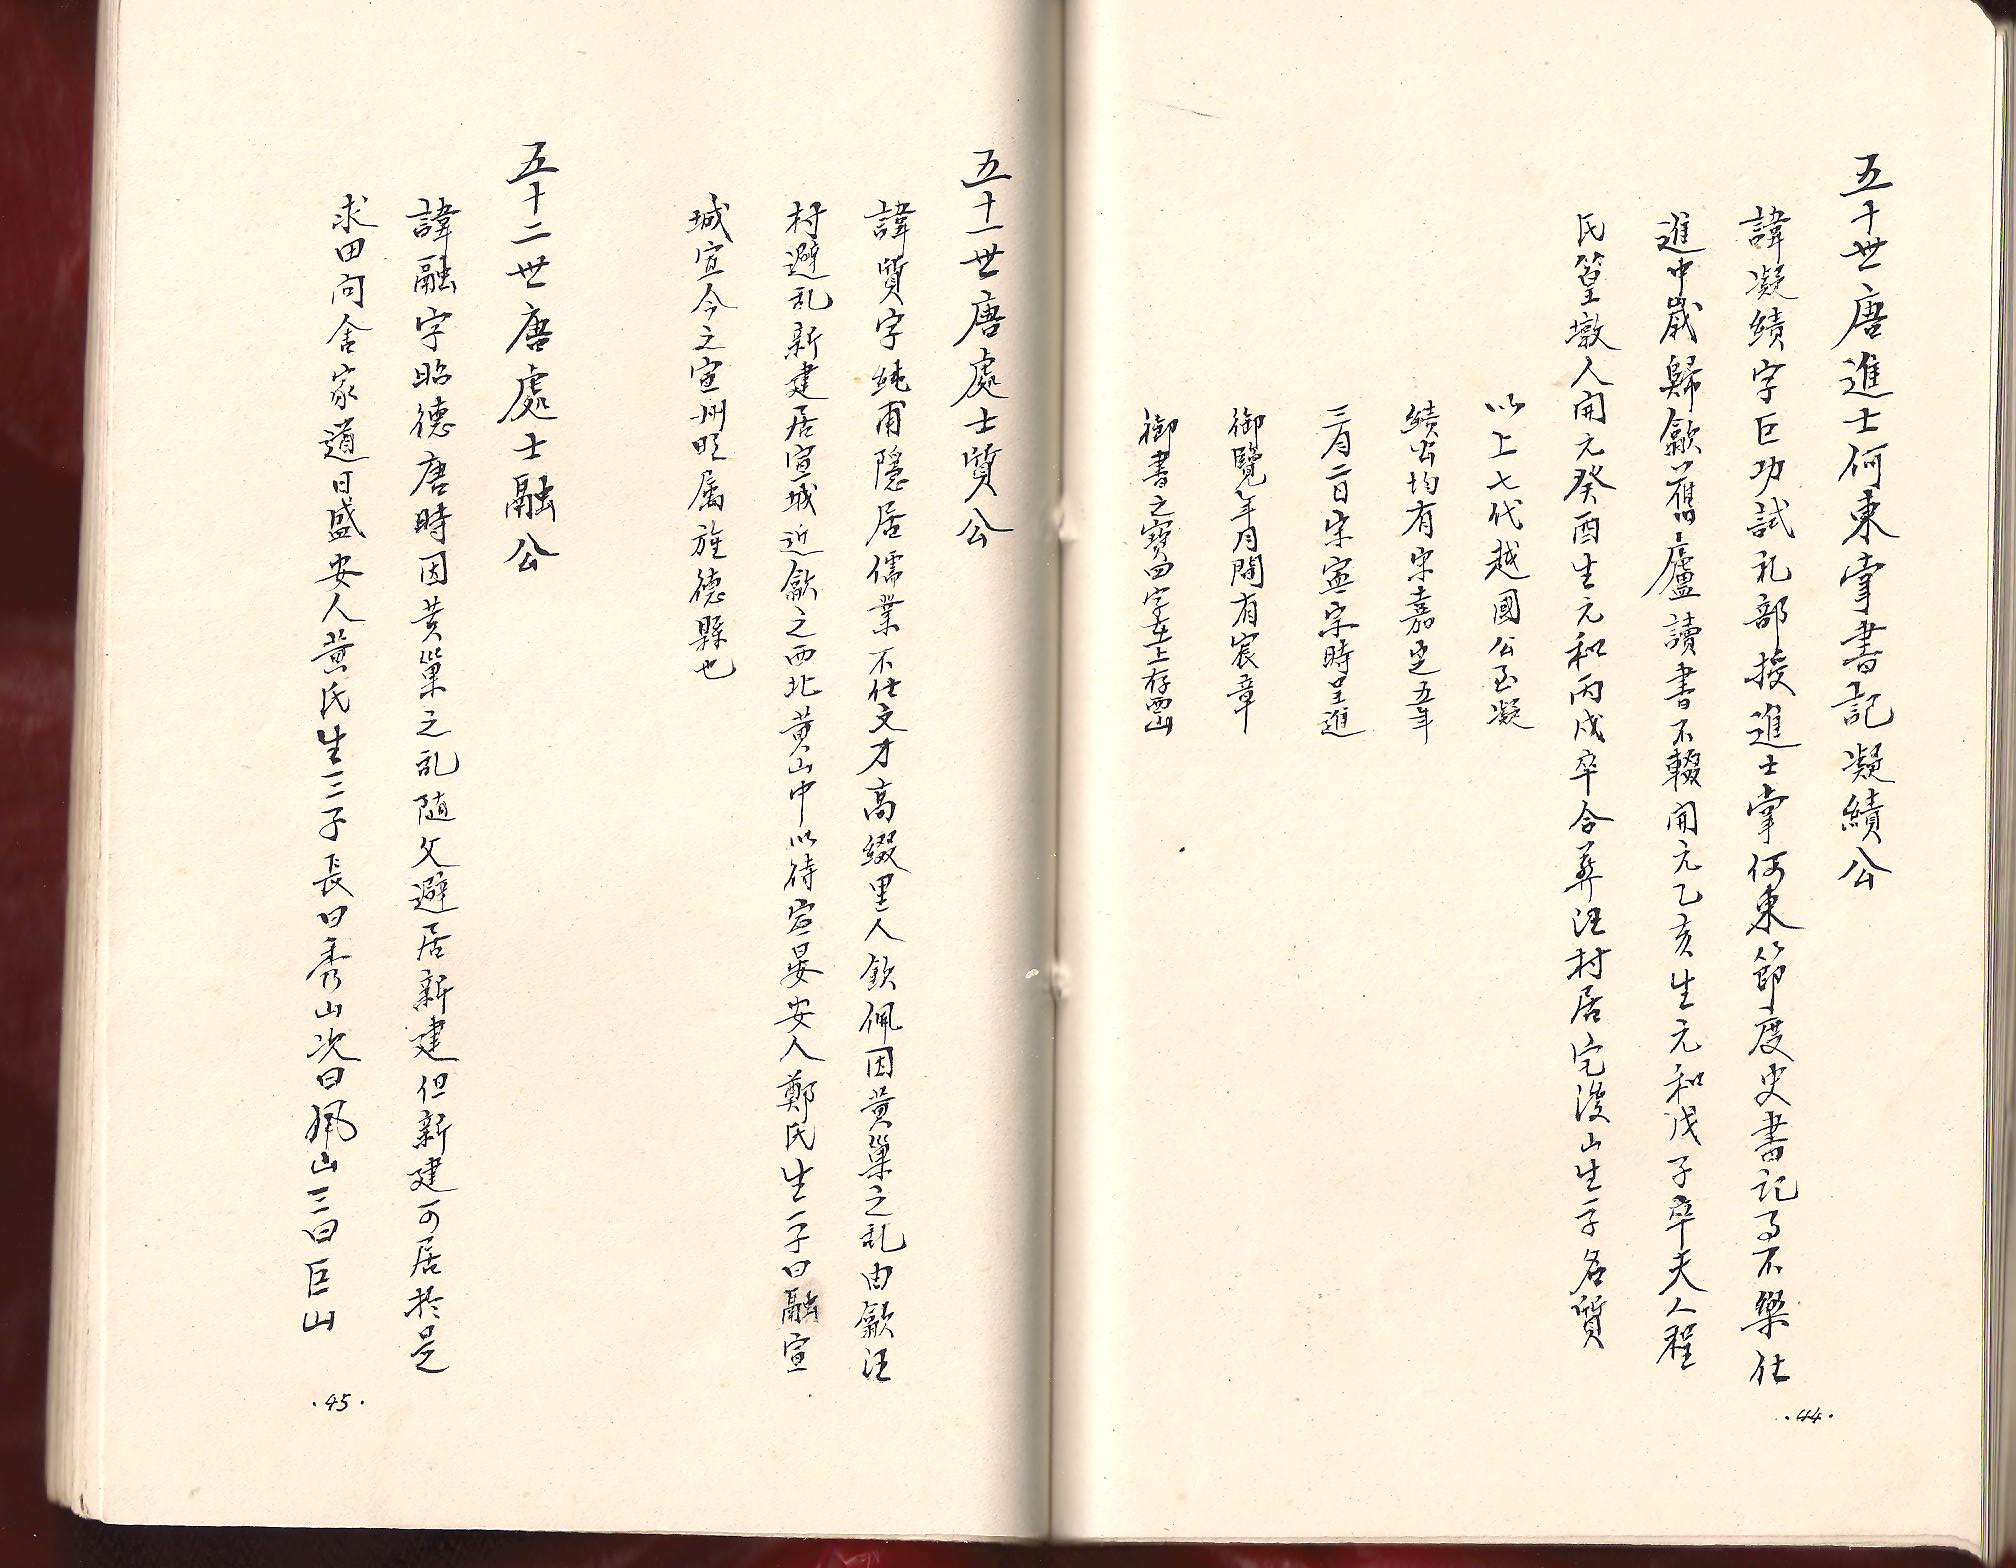 五十世唐進士何東掌書記凝績公
諱凝績字巨功試礼部授進士掌何東節度史書記事不樂仕
進中歲歸歙舊廬讀書不輟開元乙亥生元和戊子卒夫人程
氏篁墩人開元癸酉生元和丙戌卒合葬汪村居宅後山生一子名質
以上七代越國公至凝
績公均有宋嘉定五年
三月二日宋寧宗時呈進
御覽年月間有宸章
御書之寶四字在上存西山
·44·
五十一世唐處士質公
諱質字純甫隱居儒業不仕文才高綴里人欽佩因黄巢之乱由歙汪
村避乱新建居宣城近歙之西北黄山中以待宣晏安人鄭氏生一子曰融宣
城宣今之宣州明属旌德縣也
五十二世唐處士融公
諱融字昭德唐時因黄巢之乱随父避居新建但新建可居於是
求田问舍家道日盛安人黄氏生三子長曰秀山次曰佩山三曰巨山
·45·